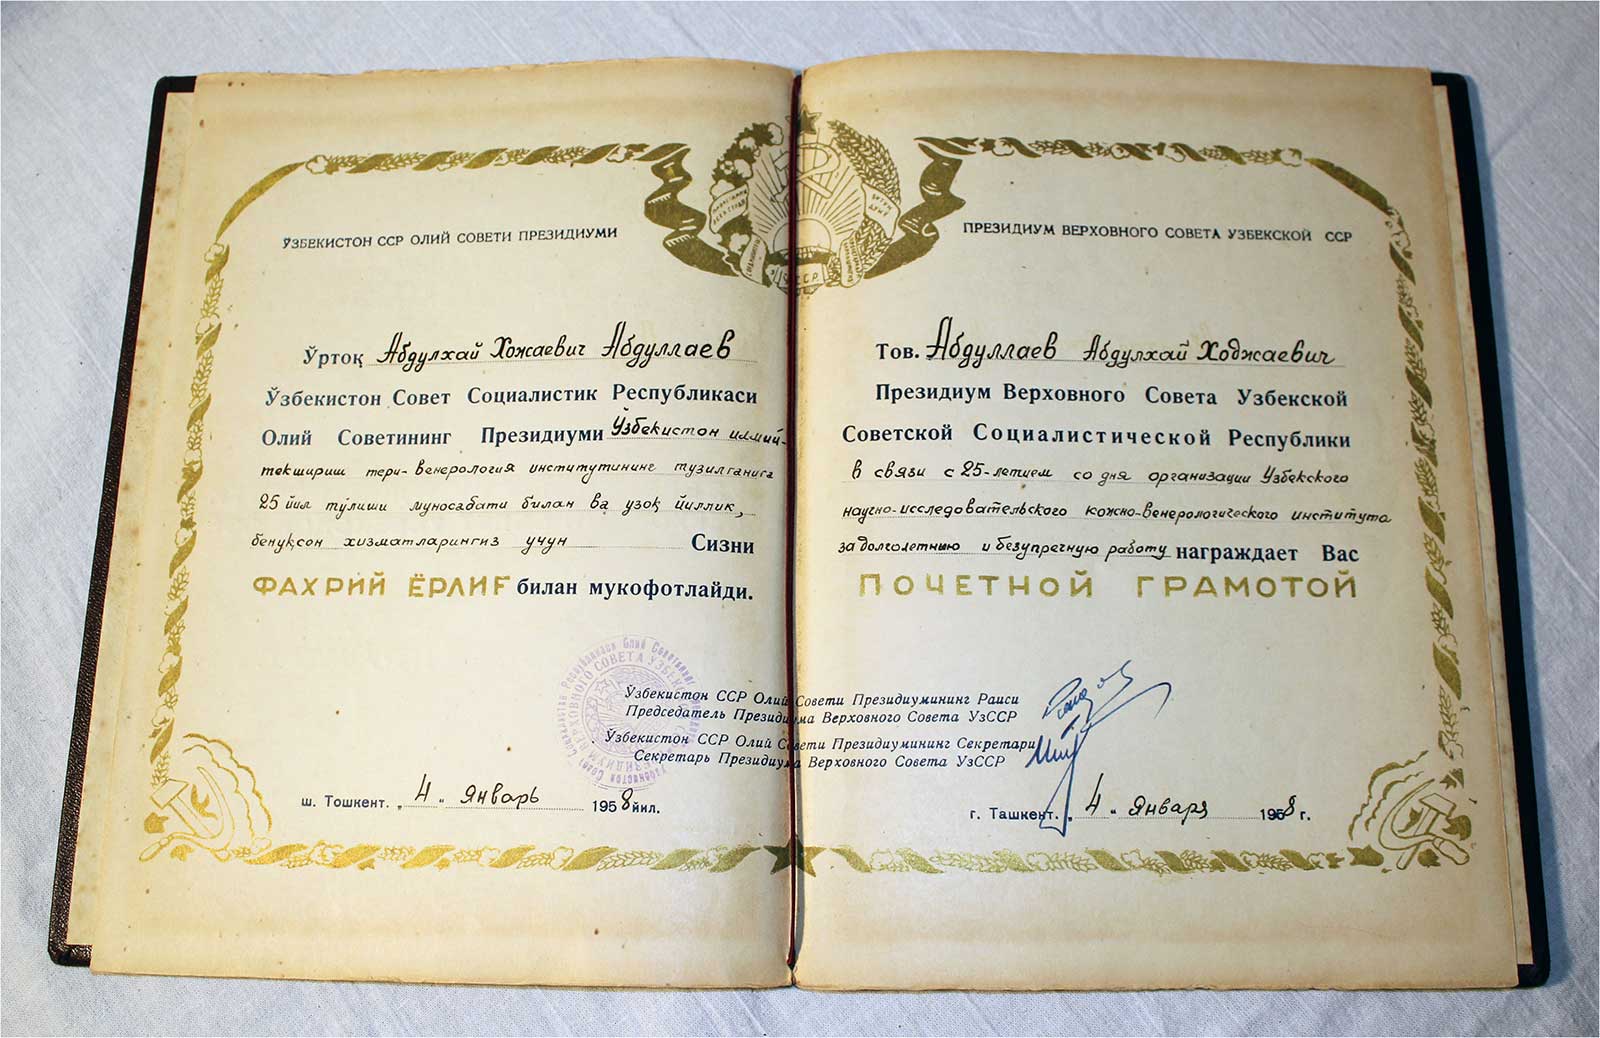 ЎЗБЕКИСТОН ССР ОЛИЙ СОВЕТИ ПРЕЗИДИУМИ
Ўртоқ Абдулхай Хожаевич Абдуллаев
Ўзбекистон Совет Социалистик Республикаси
Олий Советининг Президиуми Ўзбекистон илмий-
текшириш тери-венерология институтининг тузилганига
25 йил тўлиши муносабати билан ва узоқ йиллик,
бенуқсон хизматларингиз учун Сизни
ФАХРИЙ ЁРЛИҒ билан мукофотлайди.
ПРЕЗИДИУМ ВЕРХОВНОГО СОВЕТА УЗБЕКСКОЙ ССР
Тов. Абдуллаев Абдулхай Ходжаевич
Президиум Верховного Совета Узбекской
Советской Социалистической Республики
в связи с 25-летием со дня организации Узбекского
научно-исследовательского кожно-венерологического института
за долголетнюю и безупречную работу награждает Вас
ПОЧЕТНОЙ ГРАМОТОЙ
Ўзбекистон ССР Олий Совети Президиумининг Раиси
Председатель Президиума Верховного Совета УзССР
Ўзбекистон ССР Олий Совети Президиумининг Секретари
Секретарь Президиума Верховного Совета УзССР
ш. Тошкент. „4" январь 1958 йил.
г. Ташкент. „4" января 1958 г.